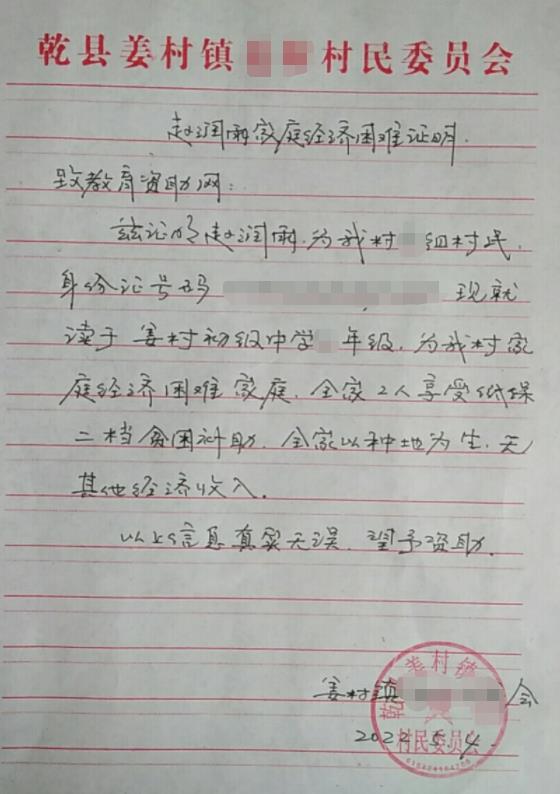 乾县姜村镇 村民委员会
赵润雨家庭经济困难证明.
致教育资助网:
兹证明赵润雨,为我村 组村民,
身份证号码 现就
读于姜村初级中学 年级,为我村家
庭经济困难家庭,全家2人享受低保
二档贫困补助,全家以种地为生,无
其他经济收入.
以上信息真实无误,望予资助.
姜村镇 会
2022.5.4.
乾 姜村镇
村民委员会